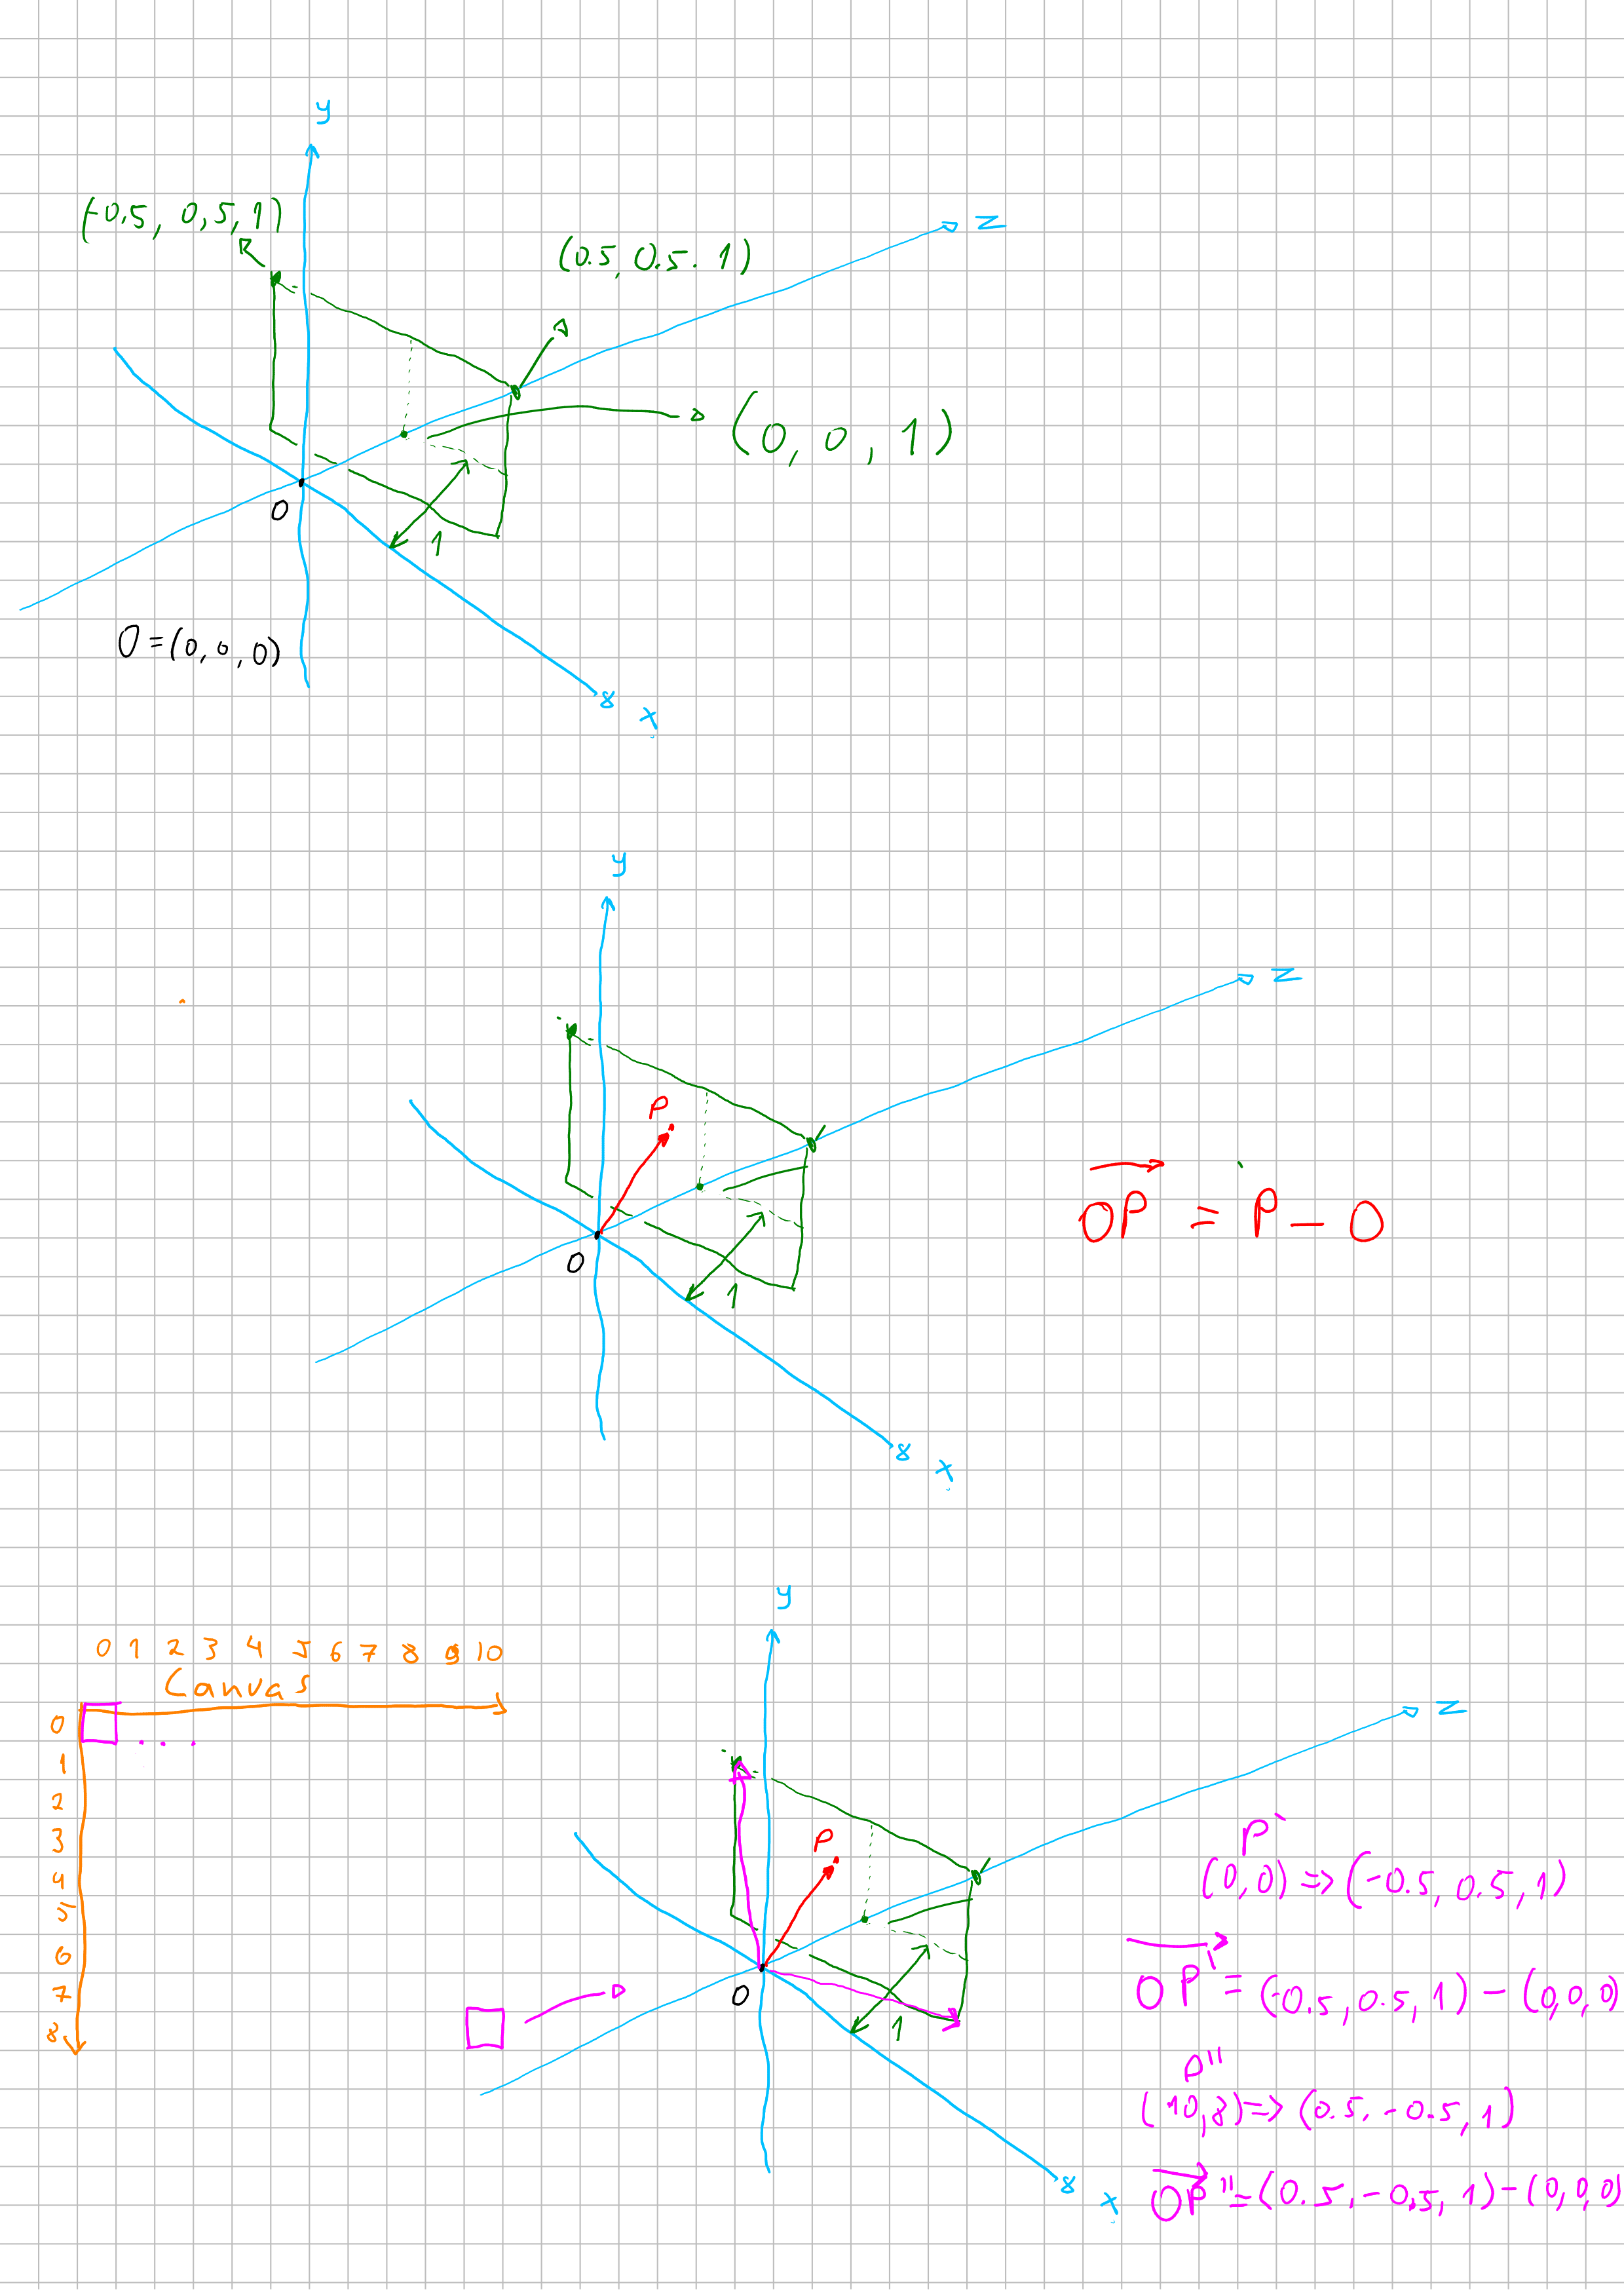 y
(-0.5, 0,5, 1)
(0.5, 0.5. 1)
z
(0, 0, 1)
O
1
O=(0,0,0)
x
y
z
P
OP = P - O
O
1
x
y
0 1 2 3 4 5 6 7 8 9 10
Canvas
0
1
2
3
4
5
6
7
8
z
P
O
1
x
P'
(0,0) => (-0.5, 0.5, 1)
OP' = (-0.5, 0.5, 1) - (0,0,0)
P''
(10,8) => (0.5, -0.5, 1)
OP'' = (0.5, -0.5, 1) - (0,0,0)